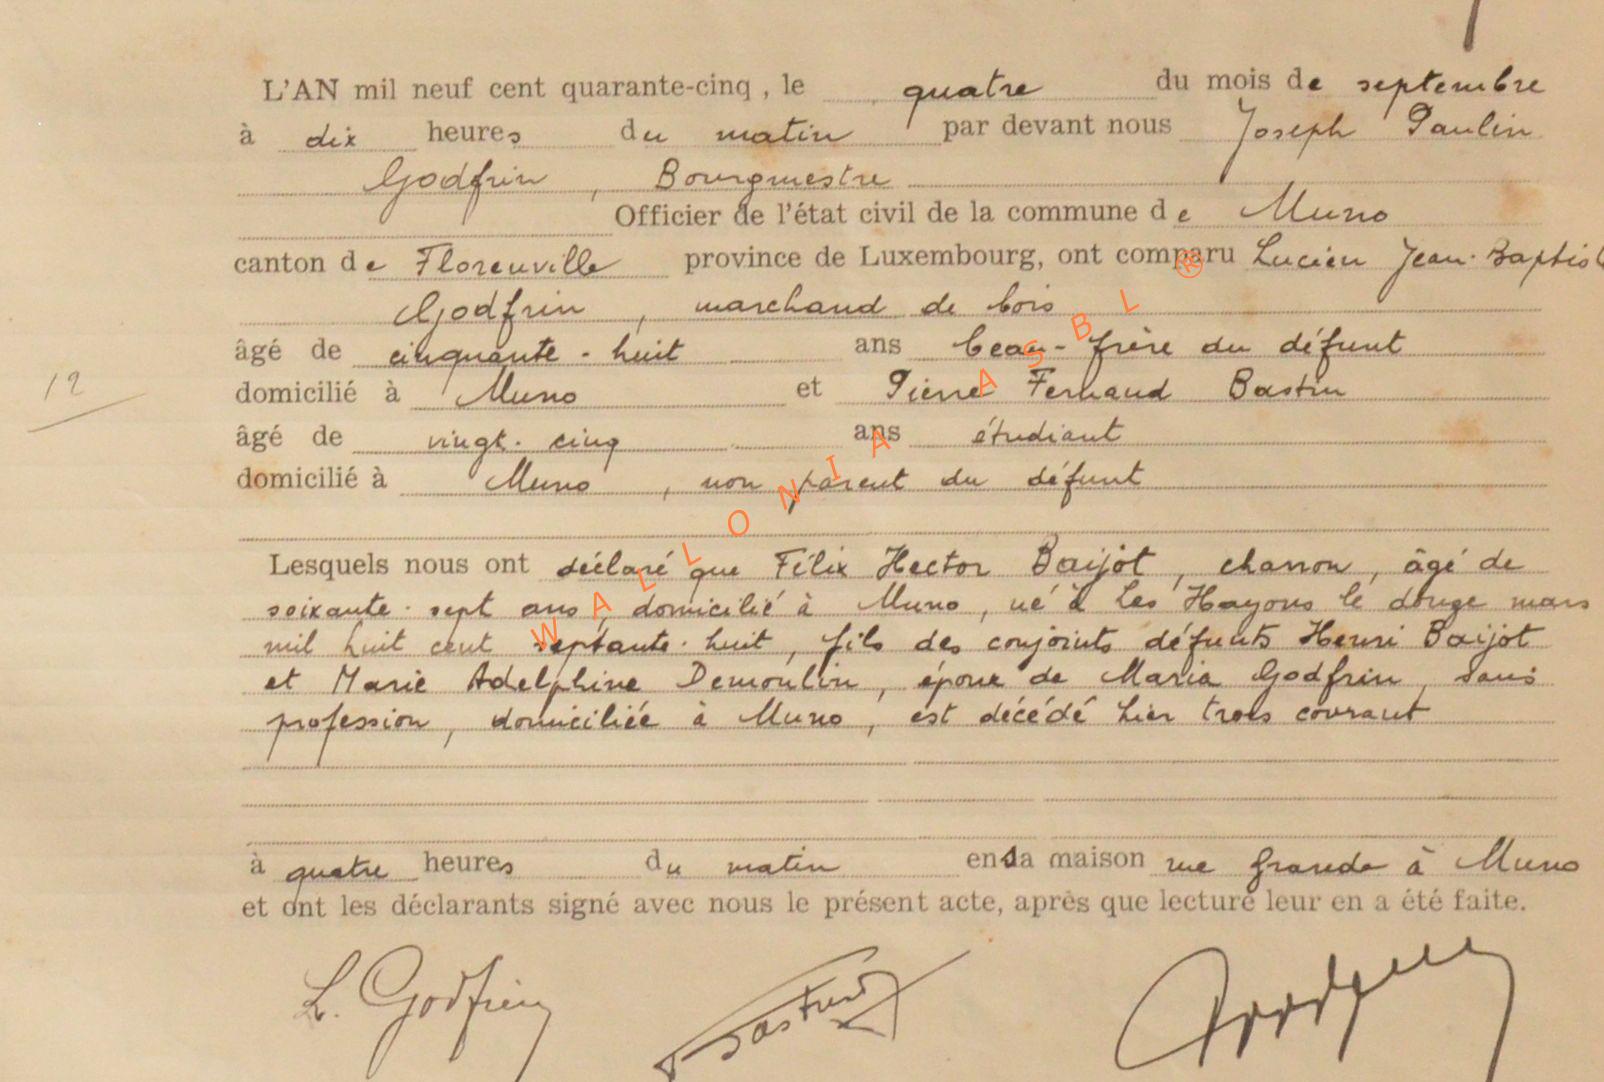 L'AN mil neuf cent quarante-cinq, le quatre du mois de septembre
à dix heures du matin par devant nous Joseph Paulin
Godfrin, Bourgmestre
Officier de l'état civil de la commune de Muno
canton de Florenville province de Luxembourg, ont comparu Lucien Jean-Baptist
Godfrin, marchand de bois
âgé de cinquante-huit ans beau-frère du défunt
domicilié à Muno et Pierre Fernand Bastin
âgé de vingt-cinq ans étudiant
domicilié à Muno, non parent du défunt
Lesquels nous ont déclaré que Félix Hector Baijot, charron, âgé de
12
soixante-sept ans, domicilié à Muno, né à Les Hayons le douze mars
mil huit cent septante-huit, fils des conjoints défunts Henri Baijot
et Marie Adelphine Demoulin, époux de Maria Godfrin, sans
profession, domiciliée à Muno, est décédé hier trois courant
à quatre heures du matin en sa maison rue Grande à Muno
et ont les déclarants signé avec nous le présent acte, après que lecture leur en a été faite.
L. Godfrin Bastin Godfrin
WALLONIA ASBL ®